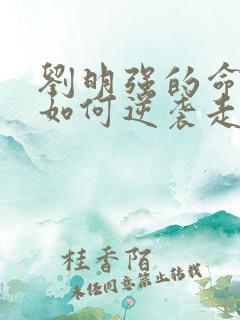 劉明强的命
如何逆袭走
桂香陌
未经同意禁止转载